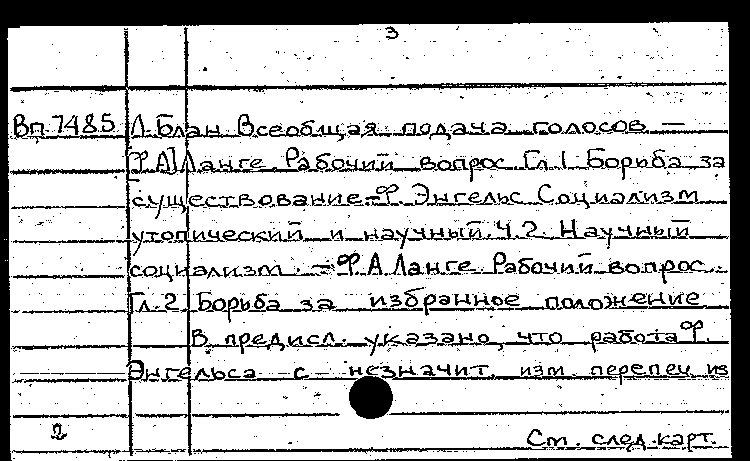 3
Вп 7485 Л. Блан Всеобщая подача голосов —
[Ф.А] Ланге. Рабочий вопрос. Гл. 1. Борьба за
существование. — Ф. Энгельс Социализм
утопический и научный. Ч. 2. Научный
социализм. — Ф. А. Ланге. Рабочий вопрос.
Гл. 2. Борьба за избранное положение
В предисл. указано, что работа Ф.
Энгельса с незначит. изм. перепеч из
2 См. след. карт.